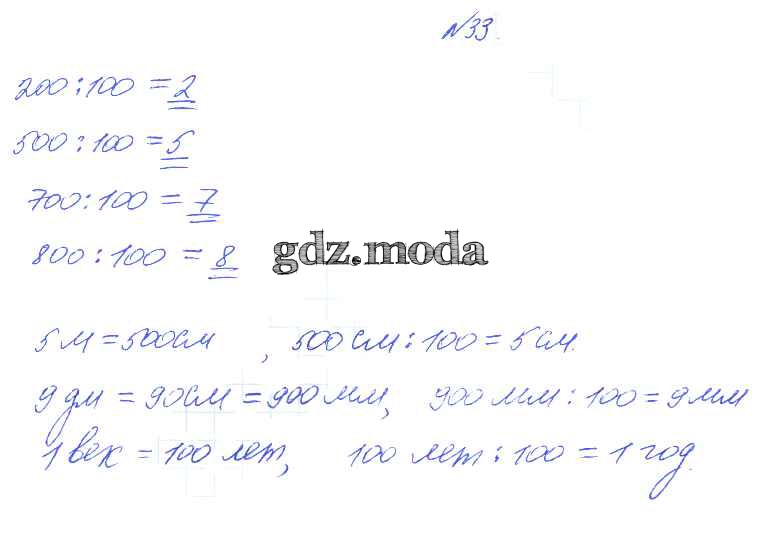 №33.
200 : 100 = 2
500 : 100 = 5
700 : 100 = 7
800 : 100 = 8
gdz.moda
5 м = 500 см, 500 см : 100 = 5 см.
9 дм = 90 см = 900 мм, 900 мм : 100 = 9 мм
1 век = 100 лет, 100 лет : 100 = 1 год.